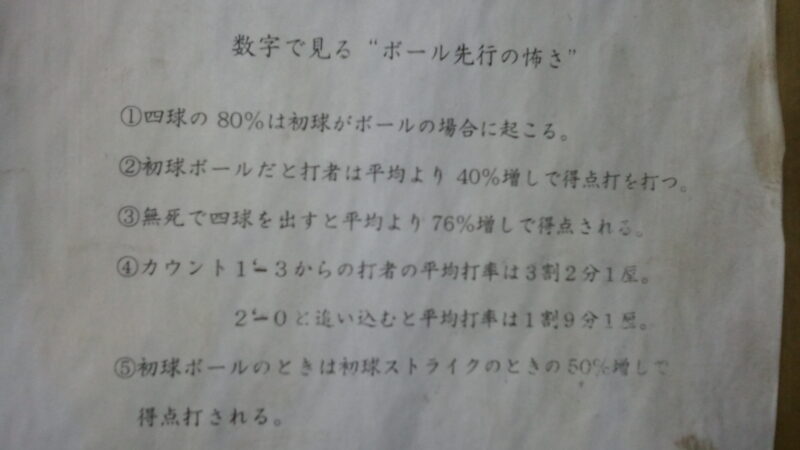 数字で見る“ボール先行の怖さ”
①四球の80%は初球がボールの場合に起こる。
②初球ボールだと打者は平均より40%増しで得点打を打つ。
③無死で四球を出すと平均より76%増しで得点される。
④カウント1-3からの打者の平均打率は3割2分1厘。
2-0と追い込むと平均打率は1割9分1厘。
⑤初球ボールのときは初球ストライクのときの50%増しで
得点打される。